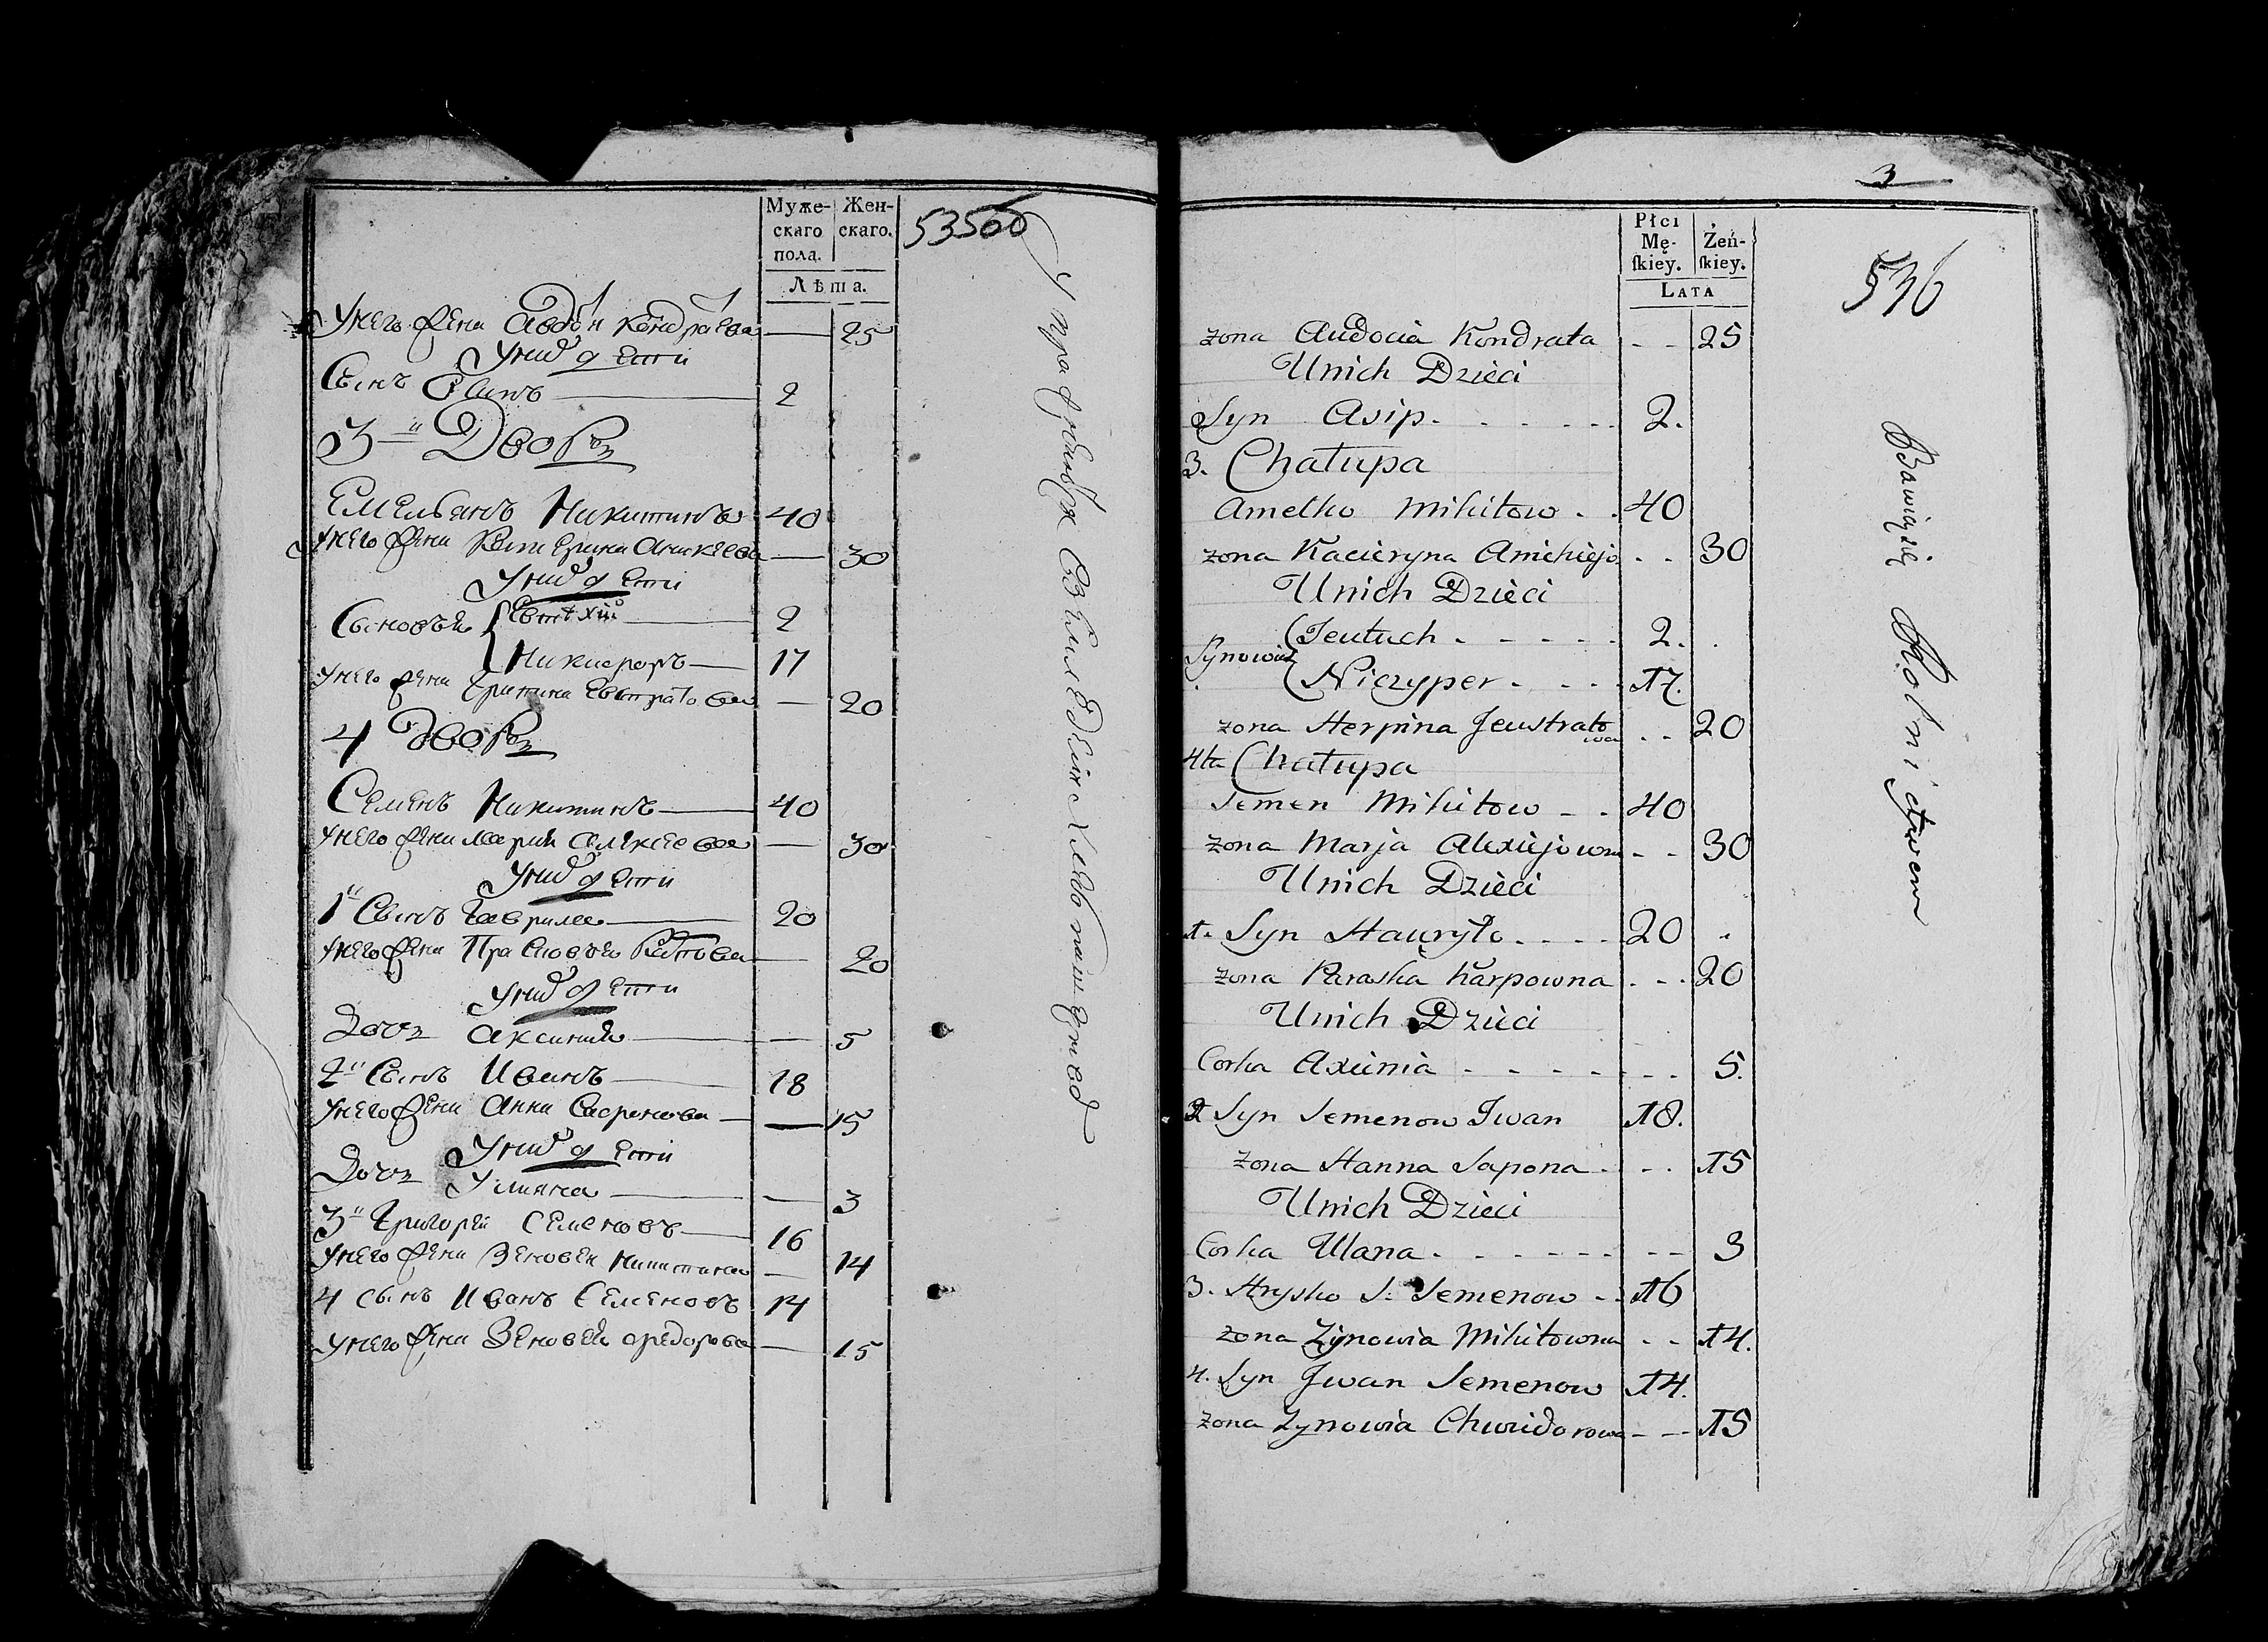 Муже-
скаго
пола.
Жен-
скаго.
Лѣта.
535об
Унего жена Авдотя Кондратева — 25
Унихъ дети
Сынъ Осипъ — 2
3-й Дворъ
Емельянъ Никитинъ 40
Унего жена Катерина Аникеева — 30
Унихъ дети
Сыновья { Евтехій — 2
Никифоръ — 17
унего жена Еритина Евстратова — 20
4 Дворъ
Семенъ Никитинъ — 40
унего жена Марія Алексеева — 30
Унихъ дети
1й Сынъ Гаврила — 20
унего жена Прасковья Карпова — 20
Унихъ дети
Дочь Аксинья — 5
2й Сынъ Иванъ — 18
унего жена Анна Сафонова — 15
Унихъ дети
Дочь Ульяна — 3
3й Григорей Семеновъ — 16
унего жена Зеновея Никитина — 14
4 сынъ Иванъ Семеновъ 14
унего жена Зеновея Федорова — 15
хлебопашествъ
3
Płci
Mę-
ſkiey.
Żeń-
ſkiey.
LATA
536
zona Audocia Kondrata - - 25
Unich Dzieci
Syn Asip. - - - - - 2.
3. Chałupa
Amelko Mikitow - - 40
zona Kacieryna Anikiejo - - 30
Unich Dzieci
Synowie { Jeutuch - - - - - 2.
{ Niczyper - - - - 17.
zona Herpina Jeustratowa - - 20
4ta Chałupa
Semen Mikitow - - 40
zona Marja Alexiejowna - - 30
Unich Dzieci
1. Syn Hauryło - - - - 20
zona Paraska Karpowna - - - 20
Unich Dzieci
Corka Axinia - - - - - - - 5.
2 Syn Semenow Iwan 18.
zona Hanna Sapona - - - 15
Unich Dzieci
Corka Ulana - - - - - - - - 3
3. Hrysko S. Semenow - - 16
zona Zynowia Mikitowna - - 14.
4. Syn Iwan Semenow 14.
zona Zynowia Chwidorowa - - - 15
Bawią się Rolnictwem